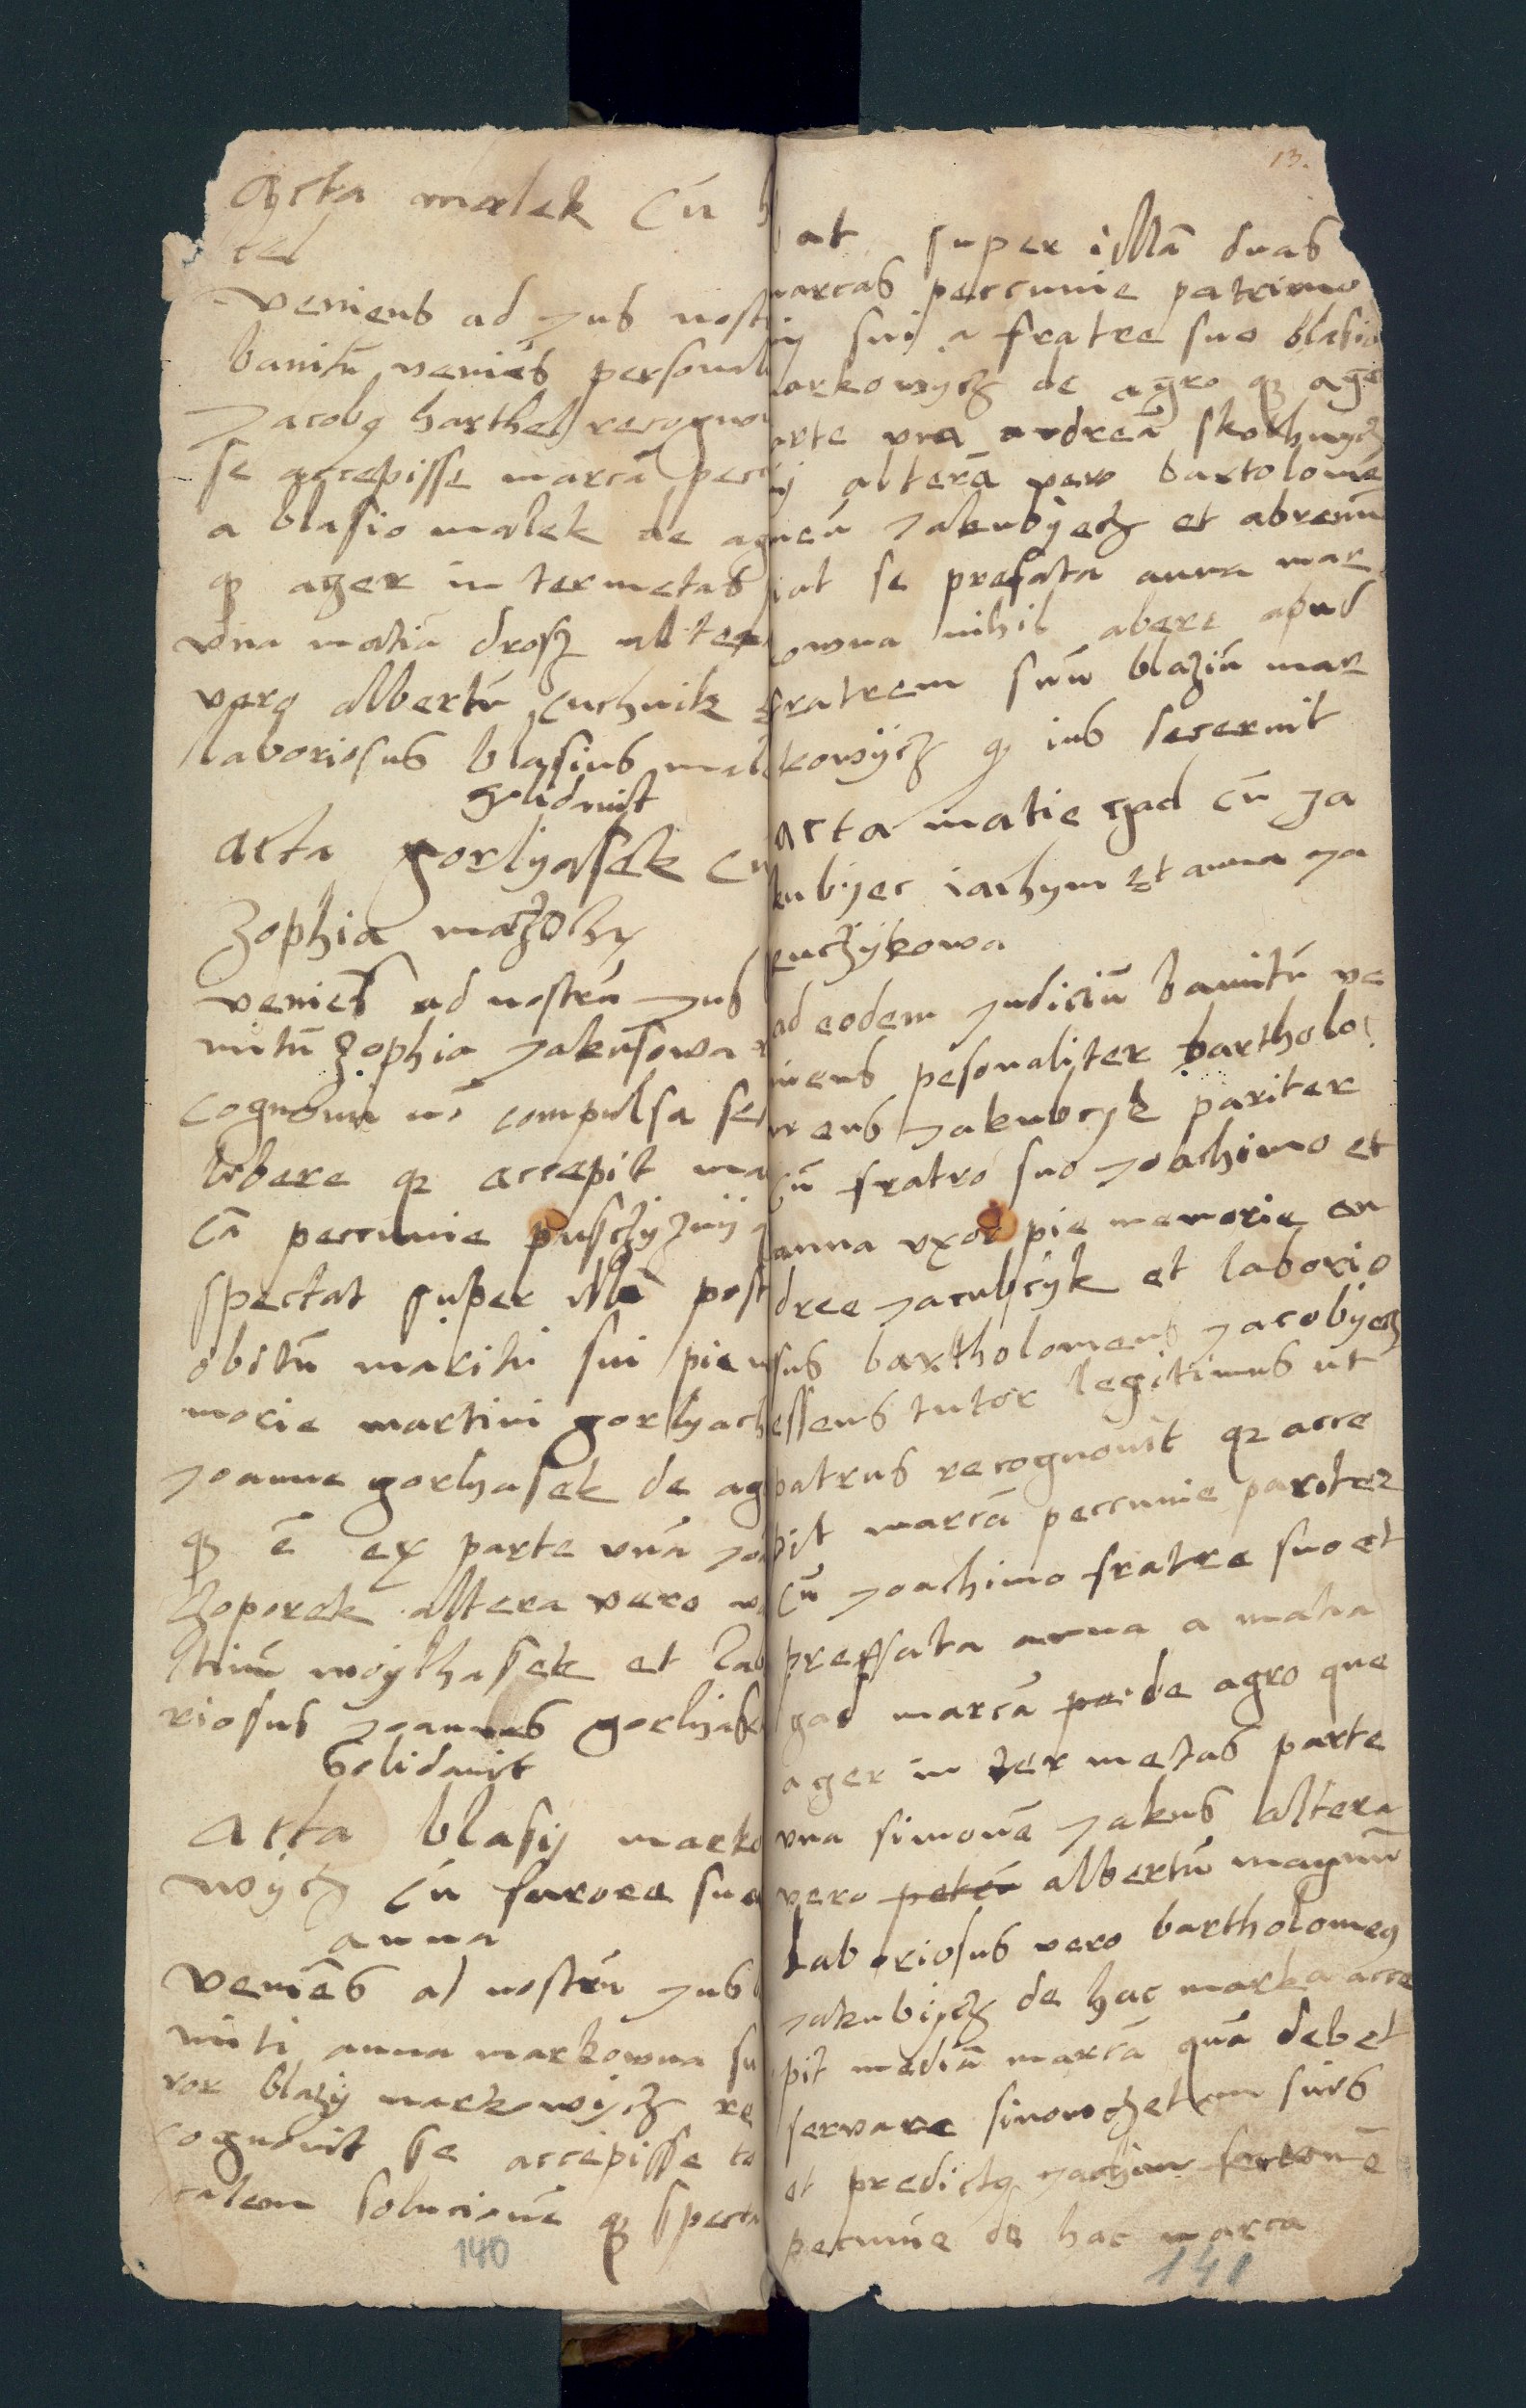 Acta malek cū h
tel
veniens ad Jus nost
banitū veniēs personal
Jacobꝯ harthel recogno
se accepisse marcā pecc
a blasio malek de ag
ꝙ ager in ter metas
vna matiā drosz alter
vero albertū cuchnik
laboriosus blasius mal
solidauit
Acta gorlyassek cu
Zophia maczochy
veniēs ad nostrū Jus
nitū Zophia Jakusowa
cognouit nō compulsa sed
libere ꝙ accepit mar
cā peccunie pusczyznÿ
spectat super illā post
obitū mariti sui pie m
morie martini gorlyach
Joanne gorlyasek de ag
ꝙ ē ex parte vnā Joa
Zoporek altera vero
woythasek et Lab
riosus Joannes gorlyase
Solidauit
Acta blasij marko
wycz cū surore sua
anna
veniēs ad nostrū Jus
niti anna markowna su
ror blazÿ markowycz re
cognouit se accepisse to
talem solucionē ꝙ specta
140
13.
at super illā duas
marcas peccunie patrimo
ij sui a fratre suo blasio
arkowycz de agro ꝙ age
arte vna andreā
ij alterā vero bartolome
meū Jakubyecz et abrenū
iat se prefata anna mar
owna nihil abere apud
fratrem suū blaziū mar
kowycz ꝙ ius secernit
Acta matie gad cū Ja
kubyec iachym et anna Ja
kuczykowa
ad eodem Judiciū banitū ve
niens pesonaliter bartholo
meus Jakubcyk pariter
cū fratro suo Joachimo et
anna vxor pie memorie an
dree Jacubcyk et laborio
sus bartholomeus Jacobyecz
essens tutor legitimus ut
patrus recognouit ꝙ acce
pit marcā peccunie pariter
cū Joachimo fratre suo et
preffata anna a matia
gad marcā de agro que
ager in ter metas parte
vna simonē Jakus altera
vero petrū albertū magnū
Laboriosus vero bartholomeꝯ
Jakubycz de hac marka acce
pit mediā marcā quā debet
servare sinowczetom suis
et predictꝯ Jachim
pecunie de hac marca
141